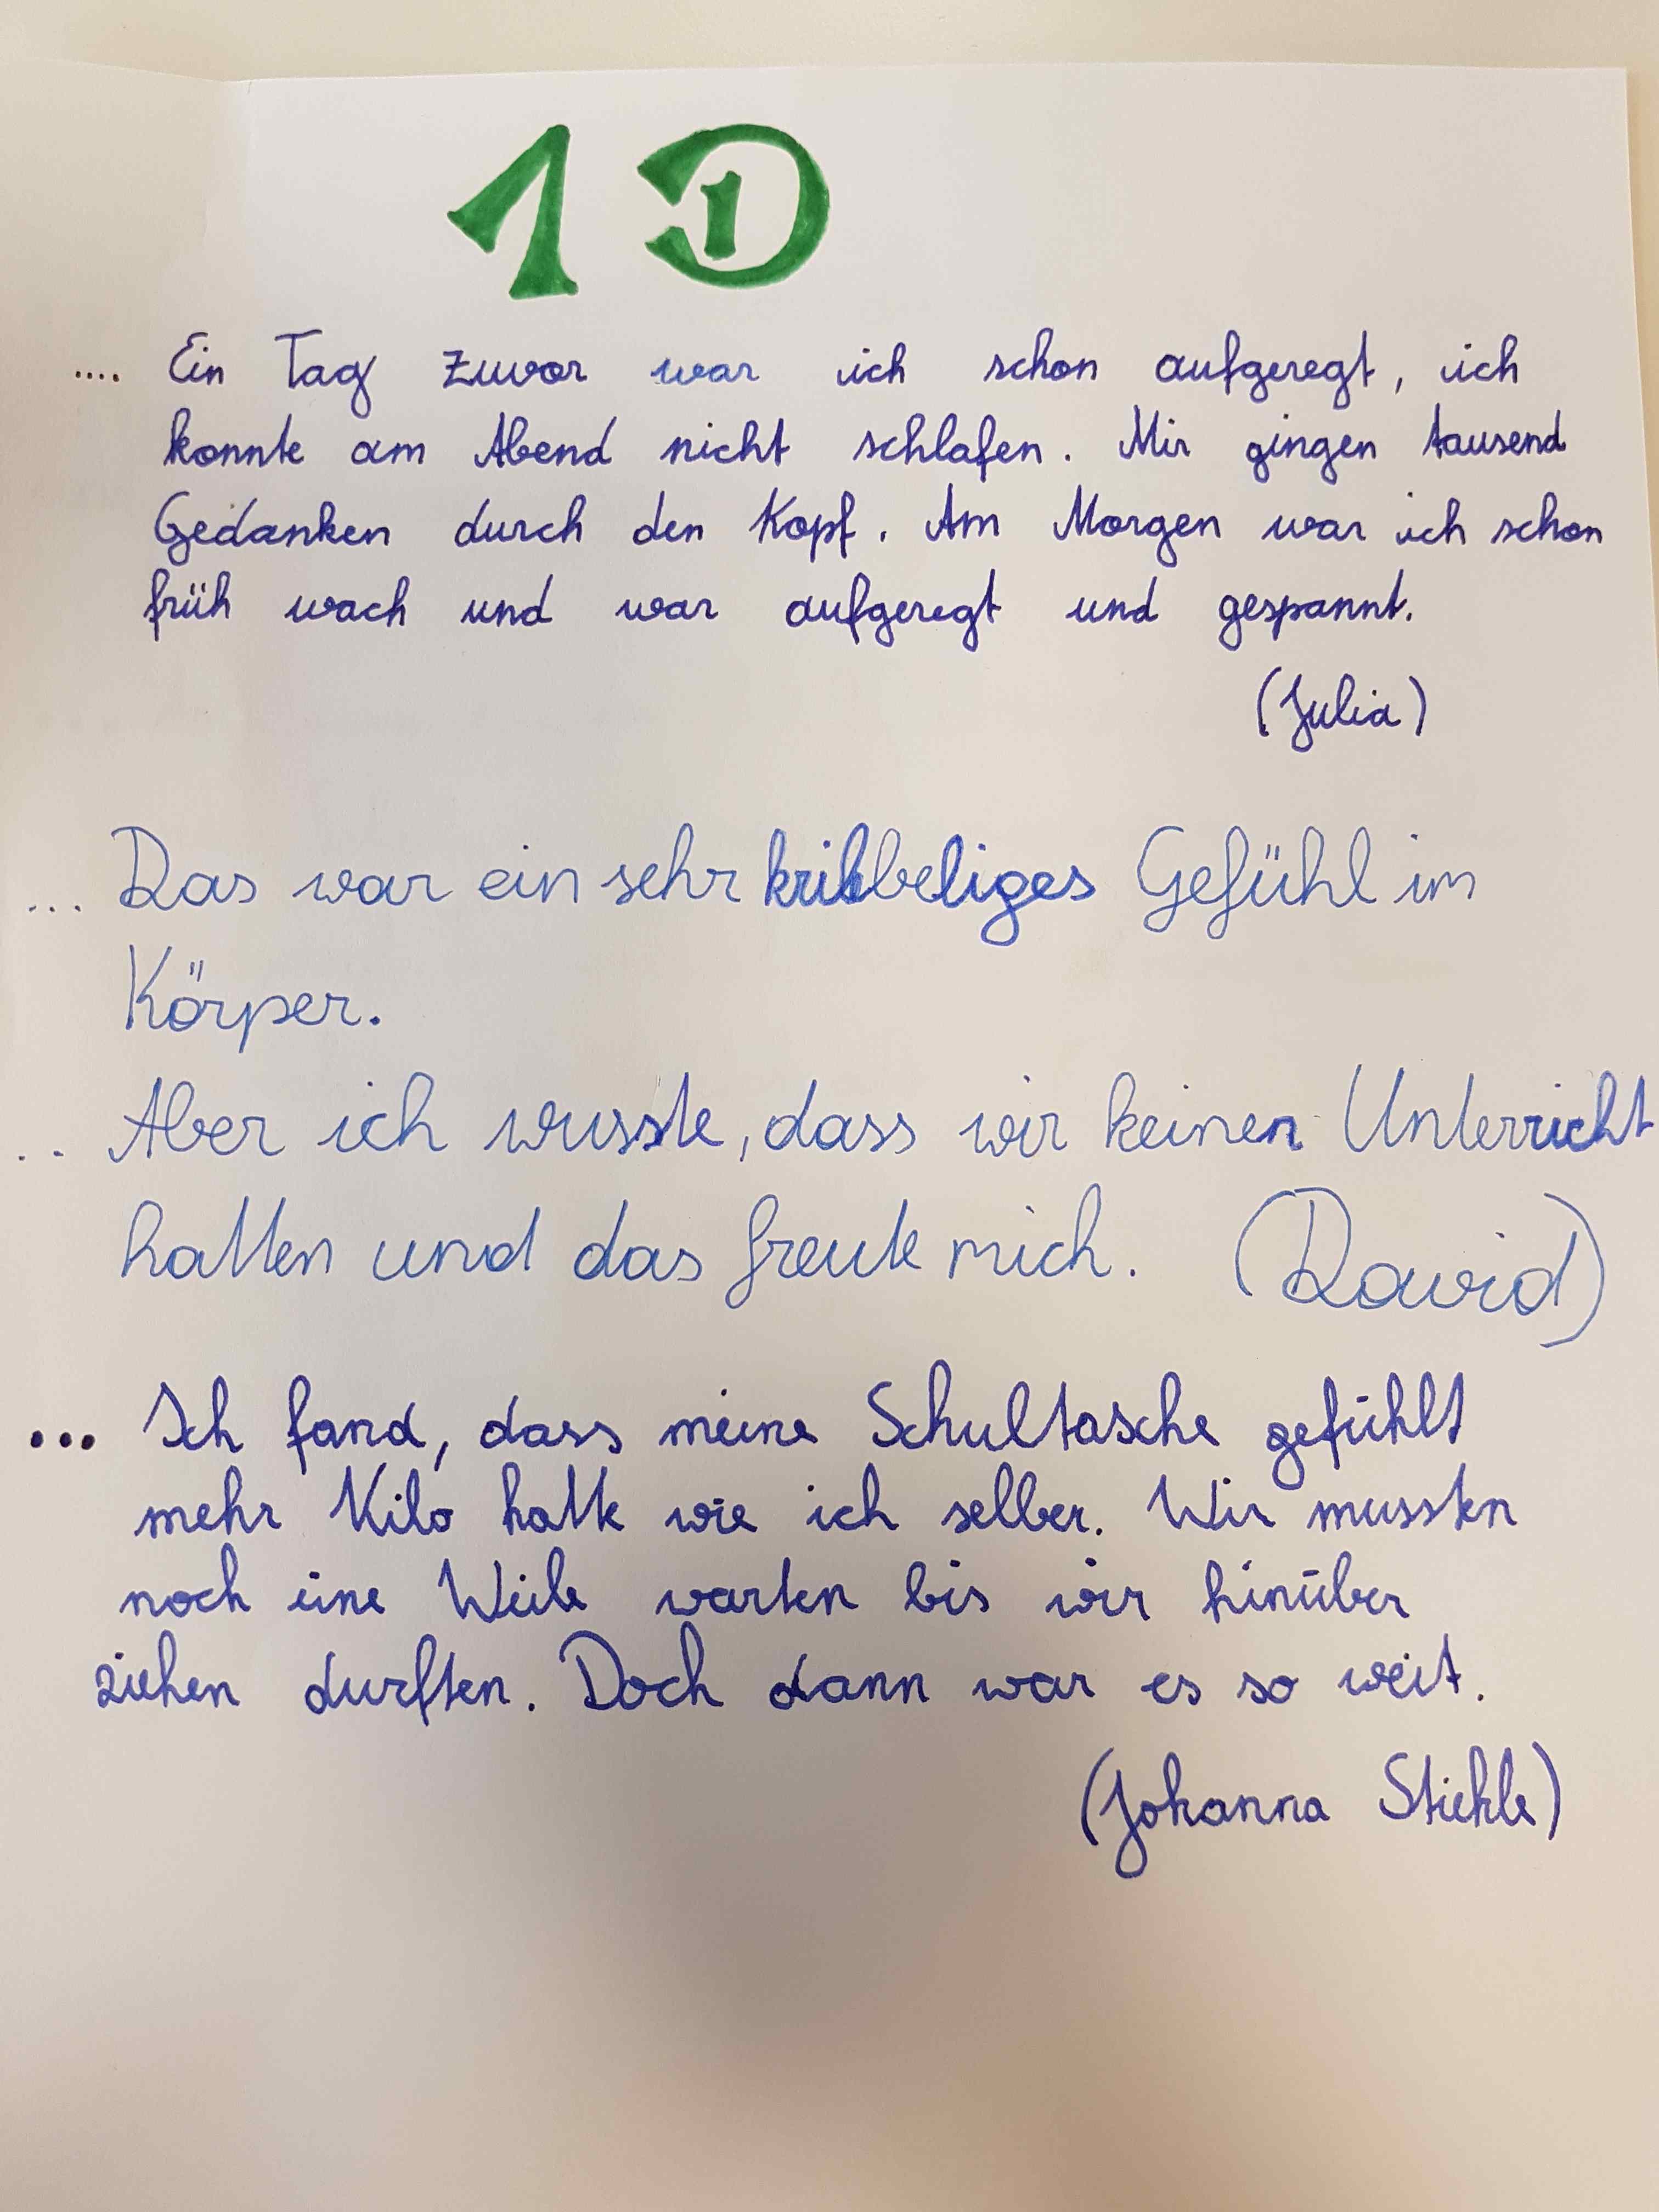 1 D
.... Ein Tag zuvor war ich schon aufgeregt, ich
konnte am Abend nicht schlafen. Mir gingen tausend
Gedanken durch den Kopf. Am Morgen war ich schon
früh wach und war aufgeregt und gespannt.
(Julia)
... Das war ein sehr kribbeliges Gefühl im
Körper.
.. Aber ich wusste, dass wir keinen Unterricht
hatten und das freute mich. (David)
... Ich fand, dass meine Schultasche gefühlt
mehr Kilo hatte wie ich selber. Wir mussten
noch eine Weile warten bis wir hinüber
ziehen durften. Doch dann war es so weit.
(Johanna Stiehle)